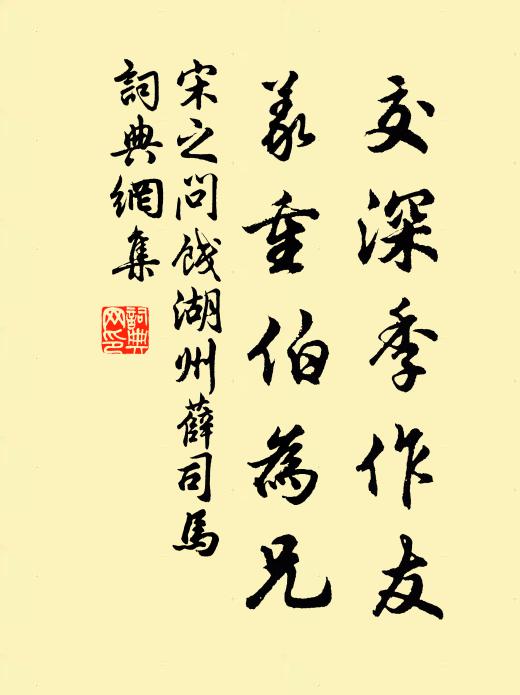 交深季作友
義重伯為兄
宋之問餞湖州薛司馬
詞典網集
詞典
网印